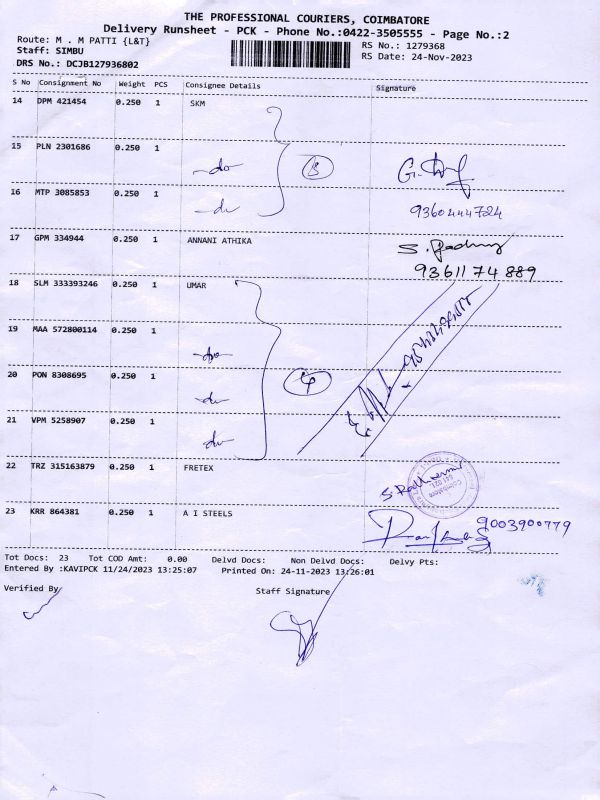 THE PROFESSIONAL COURIERS, COIMBATORE
Delivery Runsheet - PCK - Phone No.:0422-3505555 - Page No.:2
Route: M . M PATTI {L&T}
RS No.: 1279368
Staff: SIMBU
RS Date: 24-Nov-2023
DRS No.: DCJB127936802
S No Consignment No Weight PCS Consignee Details Signature
14 DPM 421454 0.250 1 SKM
15 PLN 2301686 0.250 1
-do-
3
16 MTP 3085853 0.250 1
-do-
9360444724
17 GPM 334944 0.250 1 ANNANI ATHIKA
9361174889
18 SLM 333393246 0.250 1 UMAR
19 MAA 572800114 0.250 1
-do-
20 PON 8308695 0.250 1
4
-do-
21 VPM 5258907 0.250 1
-do-
22 TRZ 315163879 0.250 1 FRETEX
23 KRR 864381 0.250 1 A I STEELS
9003900779
Tot Docs: 23 Tot COD Amt: 0.00 Delvd Docs: Non Delvd Docs: Delvy Pts:
Entered By :KAVIPCK 11/24/2023 13:25:07 Printed On: 24-11-2023 13:26:01
Verified By Staff Signature